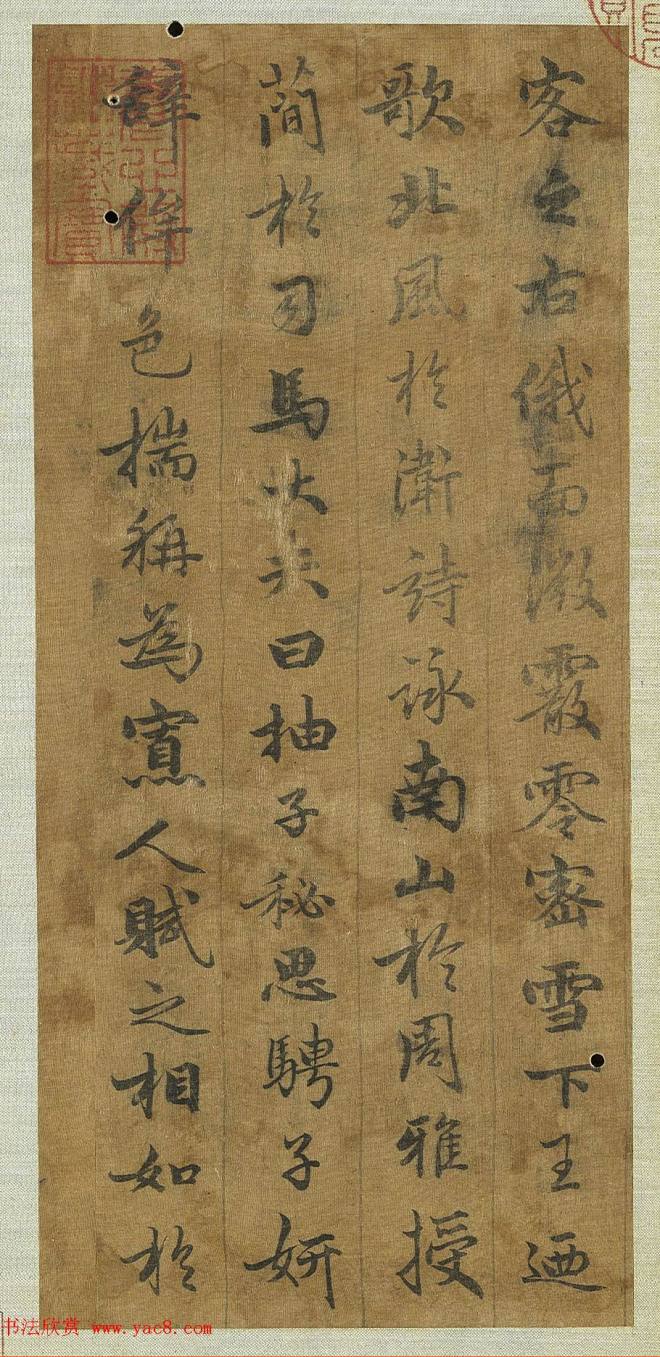 客之右俄而微霰零密雪下王迺
歌北風於衛詩詠南山於周雅授
簡於司馬大夫曰抽子秘思騁子妍
辭侔色揣稱為寡人賦之相如於
书法欣赏 www.yac8.com